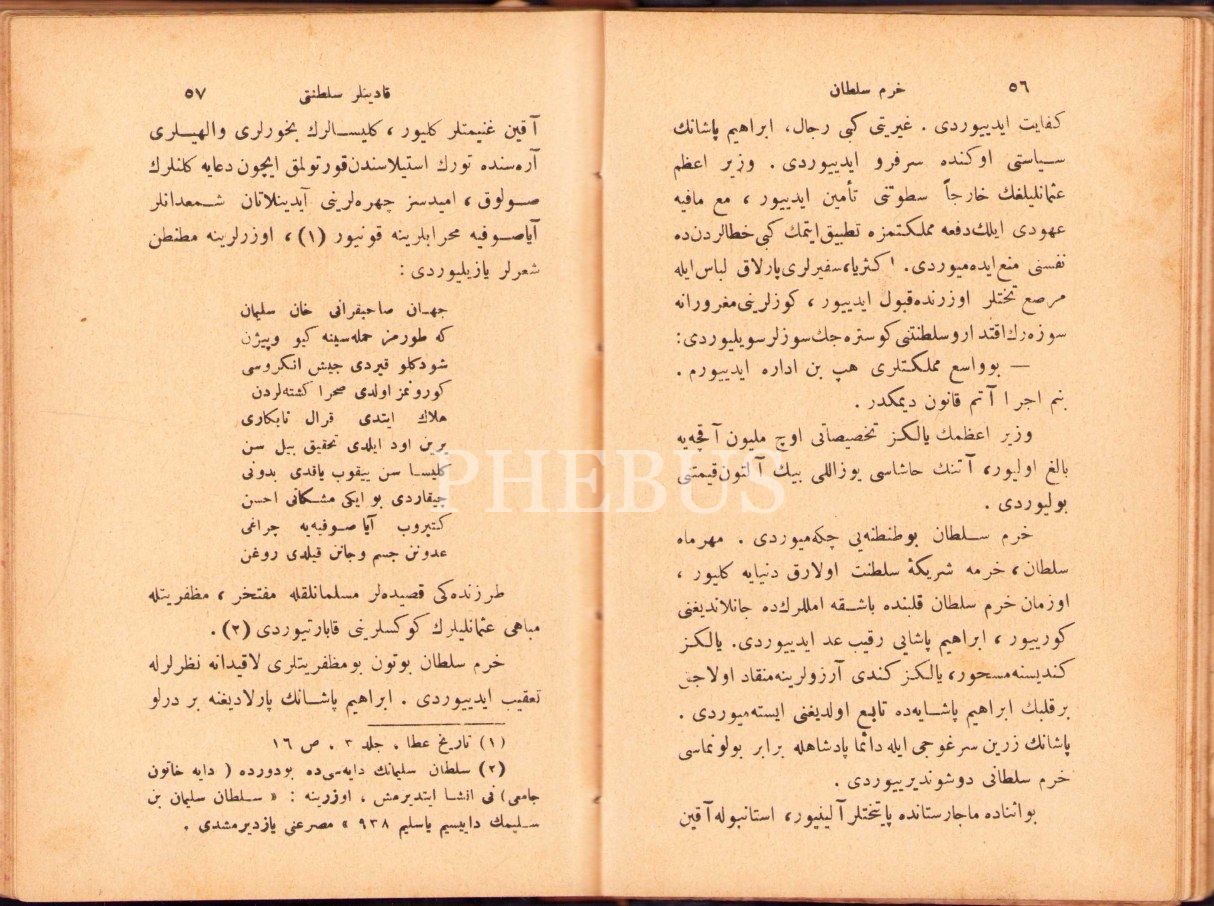 ٥٦ خرم سلطان
كفایت ایدییوردی . غیرتی كبی رجال، ابراهیم پاشانك
سیاستی اوكنده سرفرو ایدییوردی . وزیر اعظم
عثمانلیلغك خارجاً سطوتنی تأمین ایدییور ، مع مافیه
عهودی ایلك دفعه مملكتمزه تطبیق ایتمك كبی خطالردن ده
نفسنی منع ایده‌میوردی. اكثریا، سفیرلری پارلاق لباس ایله
مرصع تختلر اوزرنده قبول ایدییور ، كوزلرینی مغرورانه
سوزه‌رك اقتدار و سلطنتنی كوستره‌جك سوزلر سویلیوردی:
— بو واسع مملكتلری هپ بن اداره ایدییورم .
بنم اجرا آتم قانون دیمكدر .
وزیر اعظمك یالكز تخصیصاتی اوچ ملیون آقچه‌یه
بالغ اولیور، آتنك حاشاسی یوزاللی بیك آلتون قیمتنی
بولیوردی .
خرم سلطان بو طنطنه‌یی چكه‌میوردی . مهرماه
سلطان، خرمه شریكهٔ سلطنت اولارق دنیایه كلیور ،
اوزمان خرم سلطان قلبنده باشقه امللرك ده جانلاندیغنی
كورییور ، ابراهیم پاشایی رقیب عد ایدییوردی. یالكز
كندیسنه مسحور، یالكز كندی آرزولرینه منقاد اولاجق
برقلبك ابراهیم پاشایه‌ده تابع اولدیغنی ایسته‌میوردی .
پاشانك زرین سرغوجی ایله دائما پادشاهله برابر بولونماسی
خرم سلطانی دوشوندیرییوردی .
بواثناده ماجارستانده پایتختلر آلینیور، استانبوله آقین
قادینلر سلطنتی ٥٧
آقین غنیمتلر كلیور ، كلیسالرك بخورلری والهیلری
آره‌سنده تورك استیلاسندن قورتولمق ایچون دعایه كلنلرك
صولوق ، امیدسز چهره‌لرینی آیدینلاتان شمعدانلر
آیاصوفیه محرابلرینه قونیور (١) ، اوزرلرینه مطنطن
شعرلر یازیلیوردی :
جهان صاحبقرانی خان سلیمان
كه طورمز حمله‌سینه كیو وبیژن
شودكلو قیردی جیش انكروسی
كورونمز اولدی صحرا كشته‌لردن
هلاك ایتدی قرال نابكاری
یرین اود ایلدی تحقیق بیل سن
كلیسا سن ییقوب یاقدی بدونی
چیقاردی بو ایكی مشكاتی احسن
كتیروب آیا صوفیه‌یه چراغی
عدونن جسم وجانن قیلدی روغن
طرزنده‌كی قصیده‌لر مسلمانلقله مفتخر ، مظفریتله
مباهی عثمانلیلرك كوكسلرینی قابارتیوردی (٢) .
خرم سلطان بوتون بو مظفریتلری لاقیدانه نظرلرله
تعقیب ایدییوردی . ابراهیم پاشانك پارلادیغنه بر درلو
(١) تاریخ عطا . جلد ٣ . ص ١٦
(٢) سلطان سلیمانك دایه‌سی‌ده بودورده ( دایه خاتون
جامعی ) نی انشا ایتدیرمش ، اوزرینه : « سلطان سلیمان بن
سلیمك داییسیم یاسلیم ٩٣٨ » مصرعنی یازدیرمشدی .
PHEBUS